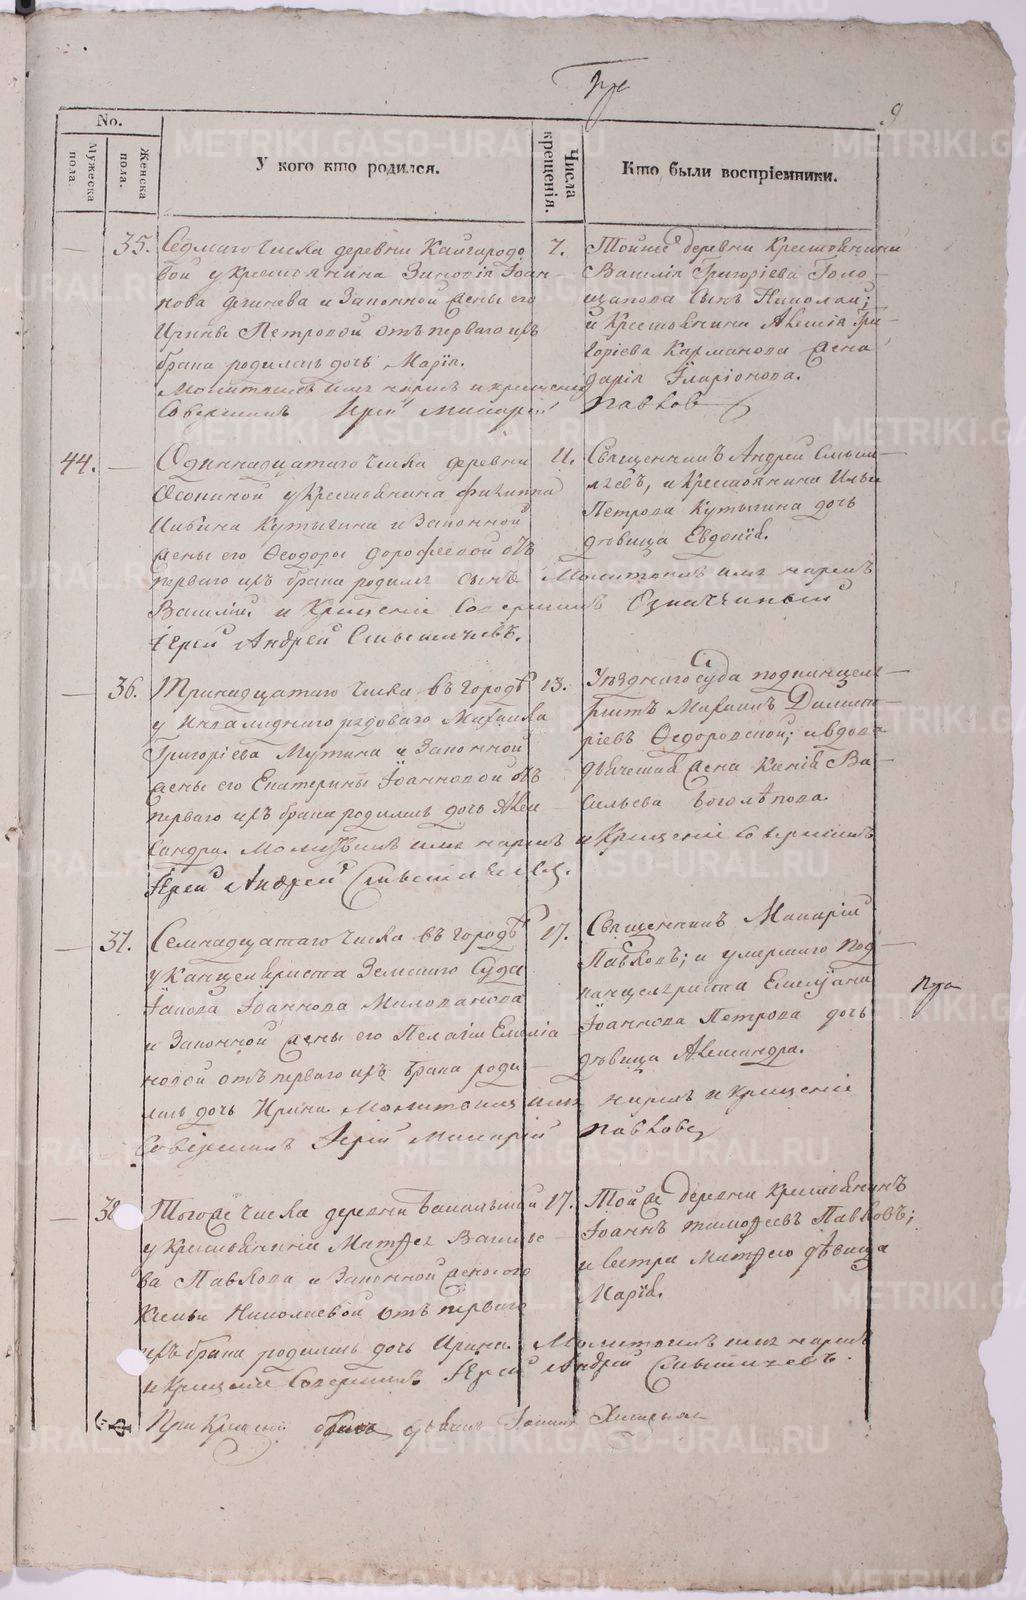 9
No.
Мужеска пола.
Женска пола.
У кого кто родился.
Числа крещенія.
Кто были воспріемники.
35. Седмаго числа деревни Кайгородо
вой у крестьянина Зиновія Іоан
нова и Законной жены его
Ирины Петровой отъ перваго ихъ
брака родилась дочь Марія.
Молитвовалъ имя нарекъ и крещеніе
Совершилъ Іерей Макарій
7. Тойже деревни Крестьянина
Василія Григоріева Голо
щапова Сынъ Николай;
и Крестьянина Алексія Гри
горіева Карманова жена
Дарія Іларіонова.
Павловъ
44. Одиннадцатаго числа деревни
Осокиной у Крестьянина Филиппа
Ильина Кутыгина и Законной
жены его Ѳеодоры Дорофеевой отъ
перваго ихъ брака родился сынъ
Василій и Крещеніе Совершилъ
Іерей Андрей Смышляевъ.
11. Священникъ Андрей Смыш
ляевъ, и Крестьянина Ильи
Петрова Кутыгина дочь
дѣвица Евдокія.
Молитвовалъ имя нарекъ
Означенный
36. Тринадцатаго числа въ городѣ
у Инвалиднаго рядоваго Михаила
Григоріева Мутина и Законной
жены его Екатерины Іоанновой отъ
перваго ихъ брака родилась дочь Алек
сандра. Молитвовалъ имя нарекъ и Крещеніе Совершилъ
Іерей Андрей Смышляевъ.
13. Уѣзднаго Суда подканцеля
ристъ Михаилъ Димит
ріевъ Ѳедоровской; и вдова
дьячешая жена Ксенія Ва
сильева Боголѣпова.
37. Семнадцатаго числа въ городѣ
у Канцеляриста Земскаго Суда
Іакова Іоаннова Милованова
и Законной жены его Пелагіи Емелія
новой отъ перваго ихъ брака роди
лась дочь Ирина Молитвовалъ имя нарекъ и Крещеніе
Совершилъ Іерей Макарій Павловъ
17. Священникъ Макарій
Павловъ; и умершаго Под
канцеляриста Емеліана
Іоаннова Петрова дочь
дѣвица Александра.
38. Тогоже числа деревни
у Крестьянина Матфея Василье
ва Павлова и Законной жены его
Ксеньи Николаевой отъ перваго
ихъ брака родилась дочь Ирина. Молитвовалъ имя нарекъ
и Крещеніе Совершилъ Іерей Андрей Смышляевъ.
17. Тойже деревни Крестьянинъ
Іоаннъ Тимофеевъ Павловъ;
и сестра Матфею дѣвица
Марія.
При Крещеніи былъ дьячекъ Іоаннъ
METRIKI.GASO-URAL.RU